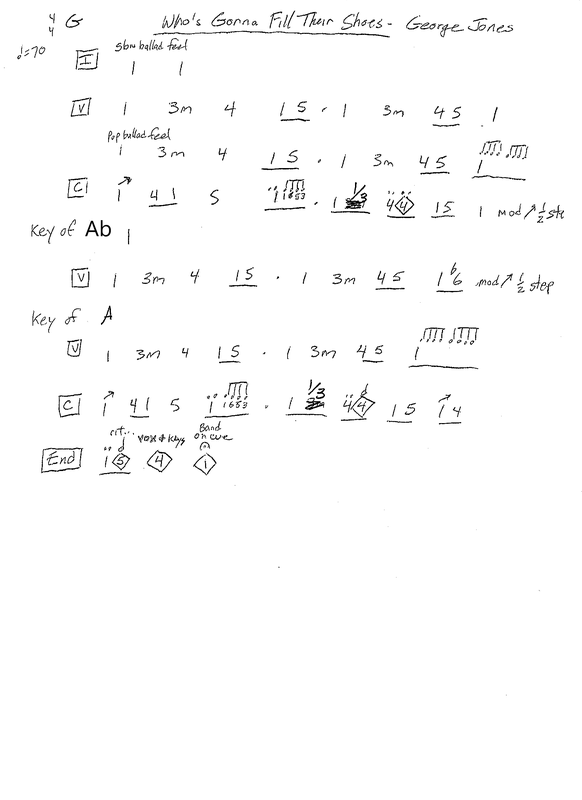 4/4 G Who's Gonna Fill Their Shoes - George Jones
♩=70 slow ballad feel
I 1 1
V 1 3m 4 1 5 . 1 3m 4 5 1
Pop ballad feel
1 3m 4 1 5 . 1 3m 4 5 1
C 1 4 1 5 1 1653 . 1 1/3 4 4 1 5 1 mod ↗ 1/2 ste
Key of Ab 1
V 1 3m 4 1 5 . 1 3m 4 5 1 b6 mod ↗ 1/2 step
Key of A
V 1 3m 4 1 5 . 1 3m 4 5 1
C 1 4 1 5 1 1653 . 1 1/3 4 4 1 5 1 4
rit... vox & keys Band on cue
End 1 5 4 1